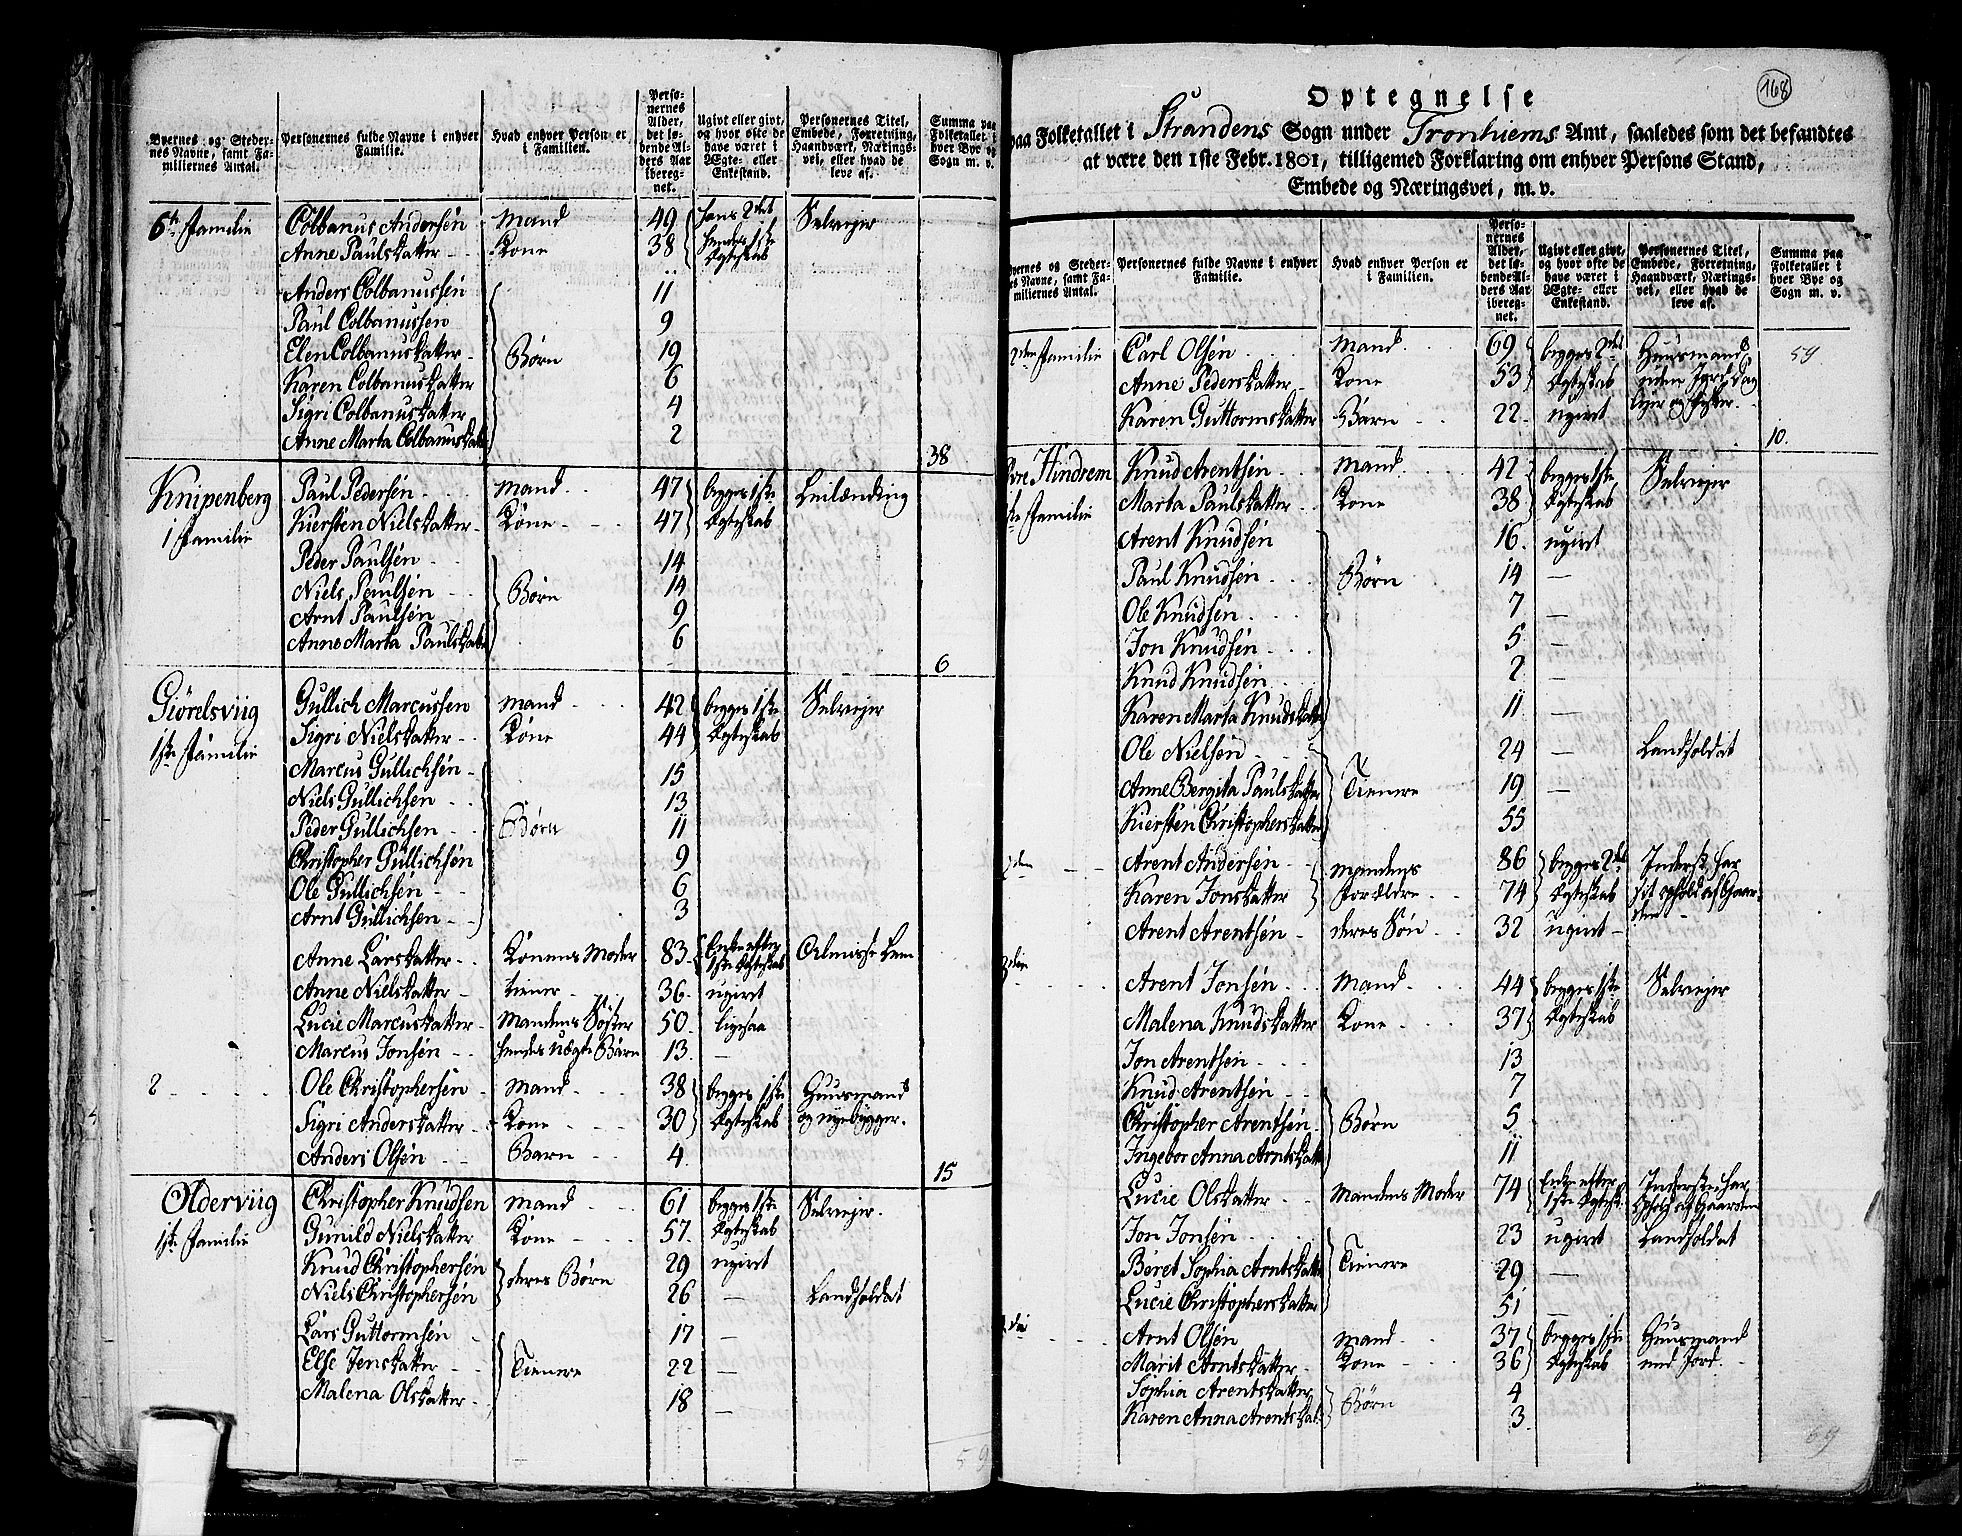 Byernes og Steder-
nes Navne, samt Fa-
miliernes Antal.
Personernes fulde Navne i enhver
Familie.
Hvad enhver Person er
i Familien.
Perso-
nernes
Alder,
det lø-
bende Al-
ders Aar
iberegne-
net.
Ugivt eller givt,
og hvor ofte de
have været i
Ægte- eller
Enkestand.
Personernes Titel,
Embede, Forretning,
Haandværk, Nærings-
vei, eller hvad de
leve af.
Summa paa
Folketallet i
hver Bye og
Sogn m. v.
6te Familie Colbanus Andersen Mand 49 hans 2det Selveyer
Anne Paulsdatter Kone 38 hendes 1ste
Ægteskab
Anders Colbanussen 11
Paul Colbanussen 9
Elen Colbanusdatter Børn 19
Karen Colbanusdatter 6
Sigri Colbanusdatter 4
Anne Marta Colbanusdatter 2
38
Knipenberg Paul Pedersen Mand 47 begges 1ste Leilænding
1 Familie Kiersten Nielsdatter Kone 47 Ægteskab
Peder Paulsen 14
Niels Paulsen Børn 14
Arnt Paulsen 9
Anne Marta Paulsdatter 6
6
Giörelsviig Gullich Marcussen Mand 42 begges 1ste Selveyer
1ste Familie Sigri Nielsdatter Kone 44 Ægteskab
Marcus Gullichsen 15
Niels Gullichsen 13
Peder Gullichsen Børn 11
Christopher Gullichsen 9
Ole Gullichsen 6
Arnt Gullichsen 3
Anne Larsdatter Konens Moder 83 Enke efter Almisse Lem
1ste Ægteskab
Anne Nielsdatter tiener 36 ugivt
Lucie Marcusdatter Mandens Søster 50 ligesaa
Marcus Jonsen hendes uægte Barn 13 —
2 Ole Christophersen Mand 38 begges 1ste Huusmand
Sigri Andersdatter Kone 30 Ægteskab og nyebygger.
Anders Olsen Barn 4
15
Olderviig Christopher Knudsen Mand 61 begges 1ste Selveyer.
1ste Familie Gunild Nielsdatter Kone 57 Ægteskab
Knud Christophersen deres Børn 29 ugivt
Niels Christophersen 26 — Landsoldat
Lars Guttormsen 17 —
Else Jensdatter Tienere 22 —
Malena Olsdatter 18 —
59
168
Optegnelse
paa Folketallet i Strandens Sogn under Tronhiems Amt, saaledes som det befandtes
at være den 1ste Febr. 1801, tilligemed Forklaring om enhver Persons Stand,
Embede og Næringsvei, m. v.
Byernes og Steder-
nes Navne, samt Fa-
miliernes Antal.
Personernes fulde Navne i enhver
Familie.
Hvad enhver Person er
i Familien.
Perso-
nernes
Alder,
det lø-
bende Al-
ders Aar
ibereg-
net.
Ugivt eller givt,
og hvor ofte de
have været i
Ægte- eller
Enkestand.
Personernes Titel,
Embede, Forretning,
Haandværk, Nærings-
vei, eller hvad de
leve af.
Summa paa
Folketallet i
hver Bye og
Sogn m. v.
2den Familie Carl Olsen Mand 69 begges 2det Huusmand 59
Anne Pedersdatter Kone 53 Ægteskab uden Jord, Dag
Karen Guttormsdatter Barn 22 ugivt lejer og fisker.
10.
Øvre Hindrem Knud Arentsen Mand 42 begges 1ste Selveyer
1ste Familie Marta Paulsdatter Kone 38 Ægteskab
Arent Knudsen 16 ugivt
Paul Knudsen Børn 14 —
Ole Knudsen 7 —
Jon Knudsen 5 —
Knud Knudsen 2 —
Karen Marta Knudsdatter 11 —
Ole Nielsen 24 — Landsoldat
Anne Bergita Paulsdatter Tienere 19 —
Kiersten Christophersdatter 55
2den Arent Andersen Mandens 86 begges 2det Inderst, har
Karen Jonsdatter Forældre 74 Ægteskab sit ophold af Gaar-
den
Arent Arentsen deres Søn 32 ugivt
3die Arent Jonsen Mand 44 begges 1ste Selveyer
Malena Knudsdatter Kone 37 Ægteskab
Jon Arentsen 13
Knud Arentsen 7
Christopher Arentsen Børn 5
Ingebor Anna Arntsdatter 11
Lucie Olsdatter Mandens Moder 74 Enke efter Inderste, har
1ste Ægtesk. Ophold af Gaarden
Jon Jonsen 23 ugivt Landsoldat
Beret Sophia Arntsdatter Tienere 29 —
Lucie Christophersdatter 51 —
Arnt Olsen Mand 37 begges 1ste Huusmand
Marit Arntsdatter Kone 36 Ægteskab med Jord
Sophia Arentsdatter Børn 4
Karen Anna Arentsdat. 3
69